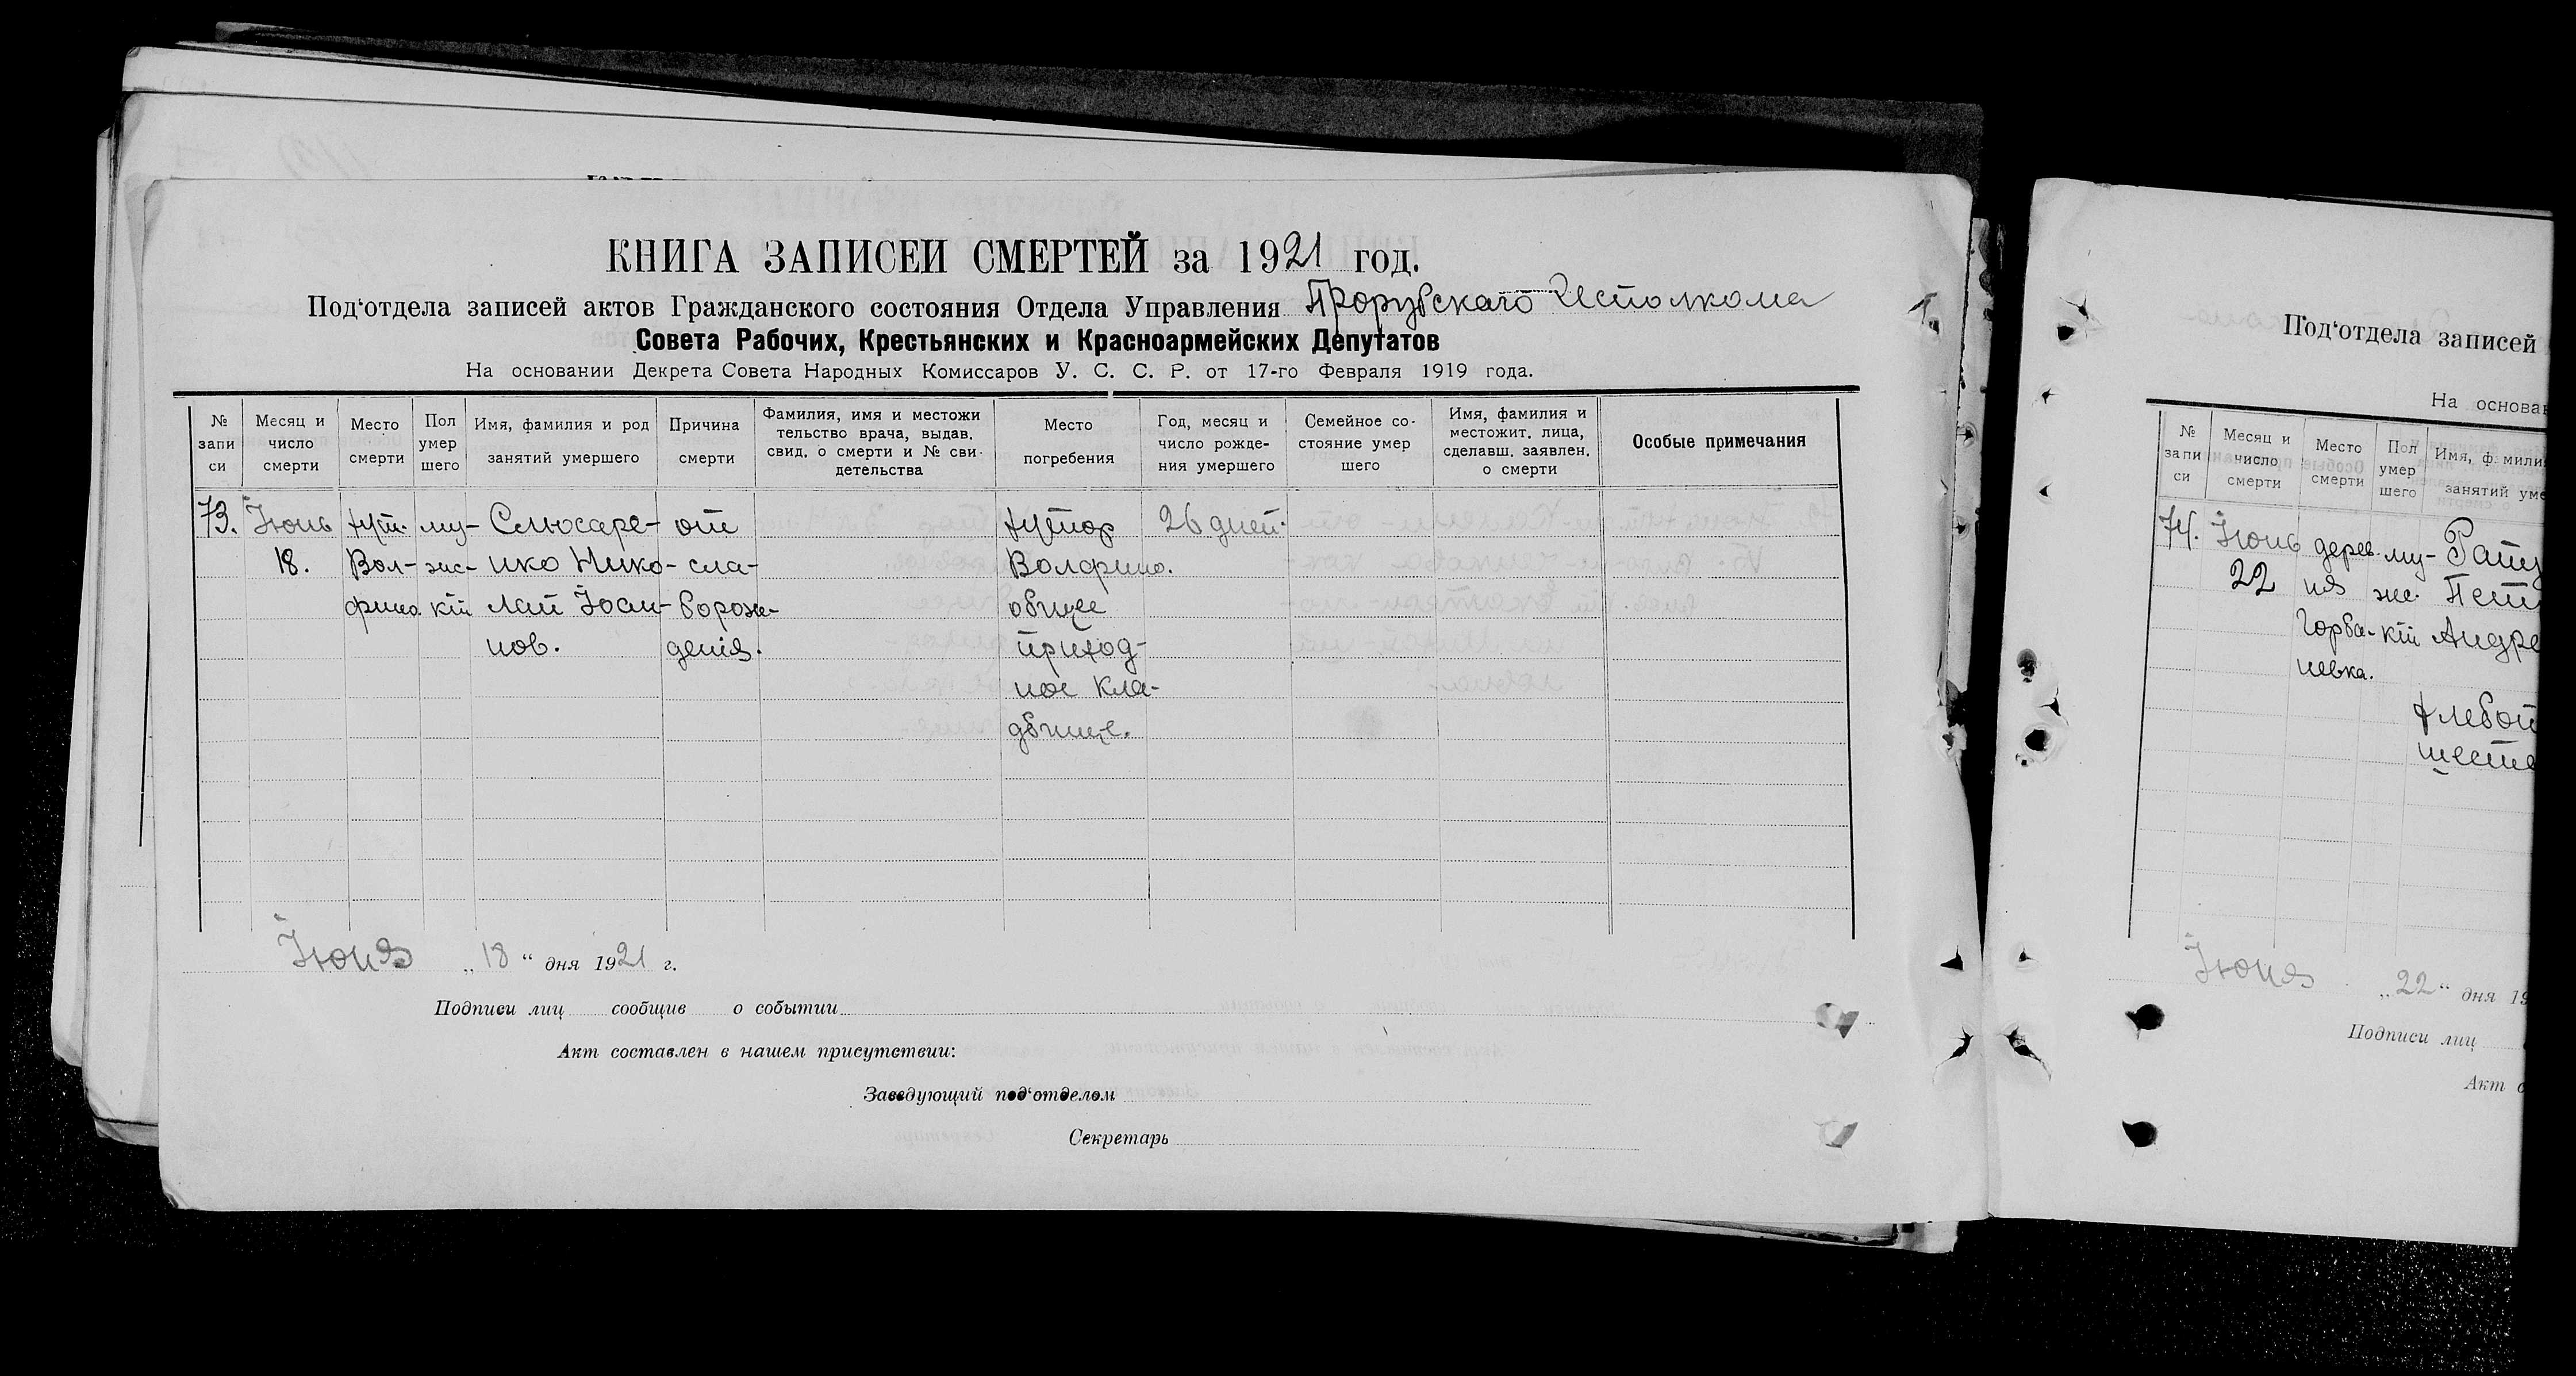 КНИГА ЗАПИСЕИ СМЕРТЕЙ за 1921 год.
Под‘отдела записей актов Гражданского состояния Отдела Управления Прорубскаго Исполкома
Совета Рабочих, Крестьянских и Красноармейских Депутатов
На основании Декрета Совета Народных Комиссаров У. С. С. Р. от 17-го Февраля 1919 года.
№ запи си
Месяц и число смерти
Место смерти
Пол умер шего
Имя, фамилия и род занятий умершего
Причина смерти
Фамилия, имя и местожи тельство врача, выдав. свид. о смерти и № сви- детельства
Место погребения
Год, месяц и число рожде- ния умершего
Семейное со- стояние умер шего
Имя, фамилия и местожит. лица, сделавш. заявлен. о смерти
Особые примечания
73. Июнь хут. му- Слюсаре- от хутор 26 дней.
18. Вол- жс- нко Нико- сла- Волфино.
фино. кій лай Іоан- борож- общее
нов. денія. приход-
ное кла-
дбище.
Июня „18“ дня 1921 г.
Подписи лиц сообщив о событии
Акт составлен в нашем присутствии:
Заведующий под‘отделом
Секретарь
Под‘отдела записей
На основан
№ запи си
Месяц и число смерти
Место смерти
Пол умер шего
Имя, фамили
занятий уме
74. Июнь дерев. му-
22 ня же.
Горба- кій Андре
невка.
Июня „22“ дня 19
Подписи лиц
Акт с